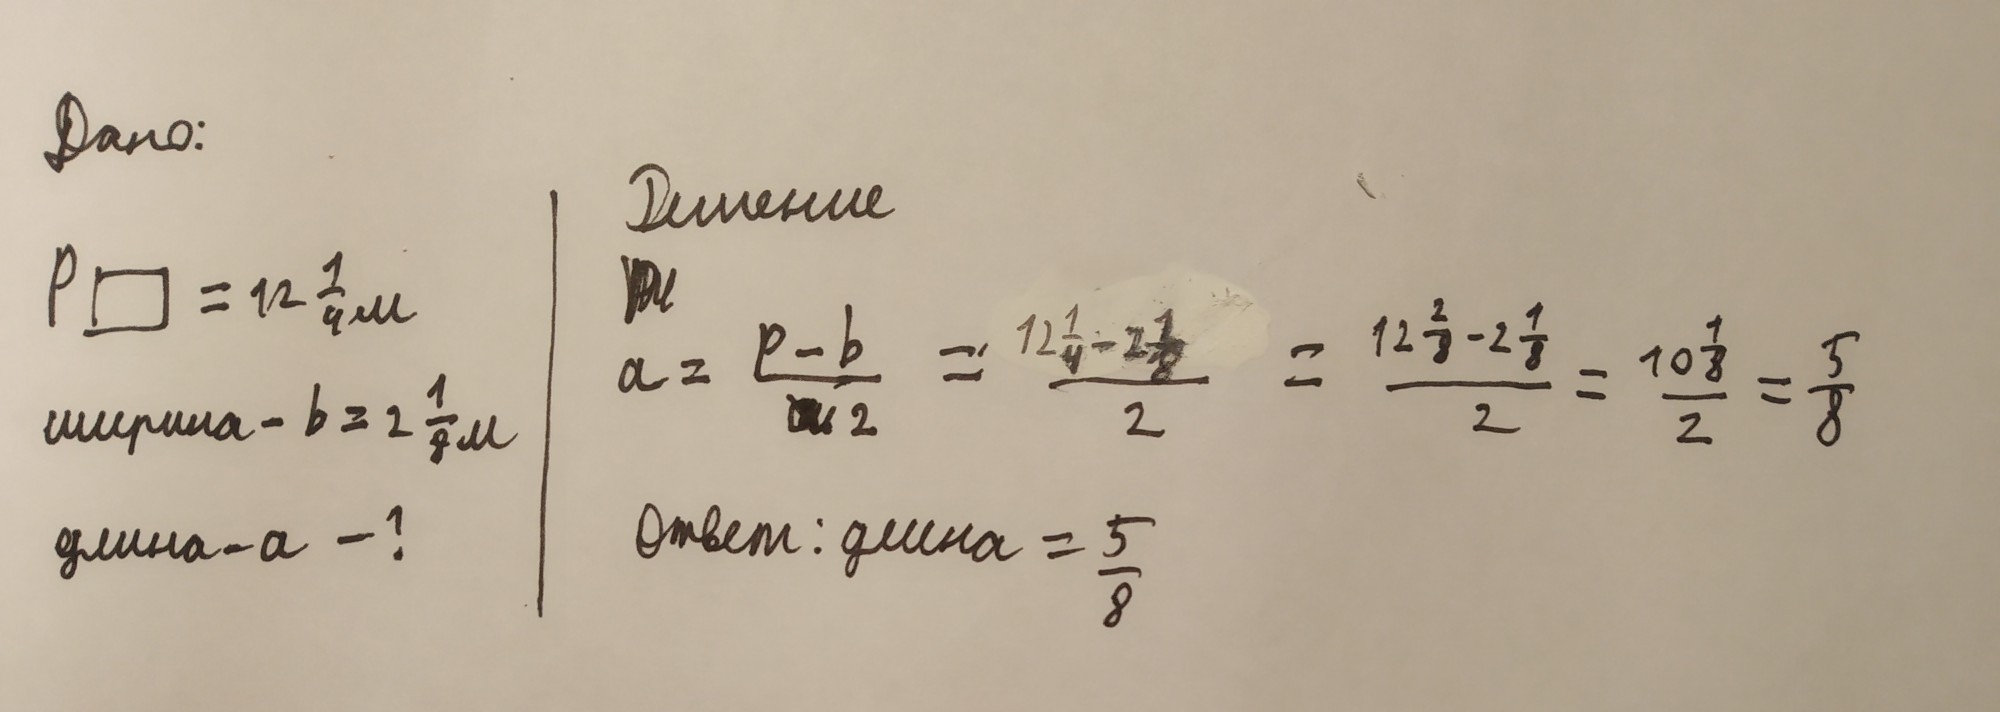 Дано:
P▭ = 12 1/4 м
ширина - b = 2 1/8 м
длина - a - ?
Решение
a = (P - b)/2 = (12 1/4 - 2 1/8)/2 = (12 2/8 - 2 1/8)/2 = (10 1/8)/2 = 5/8
Ответ: длина = 5/8